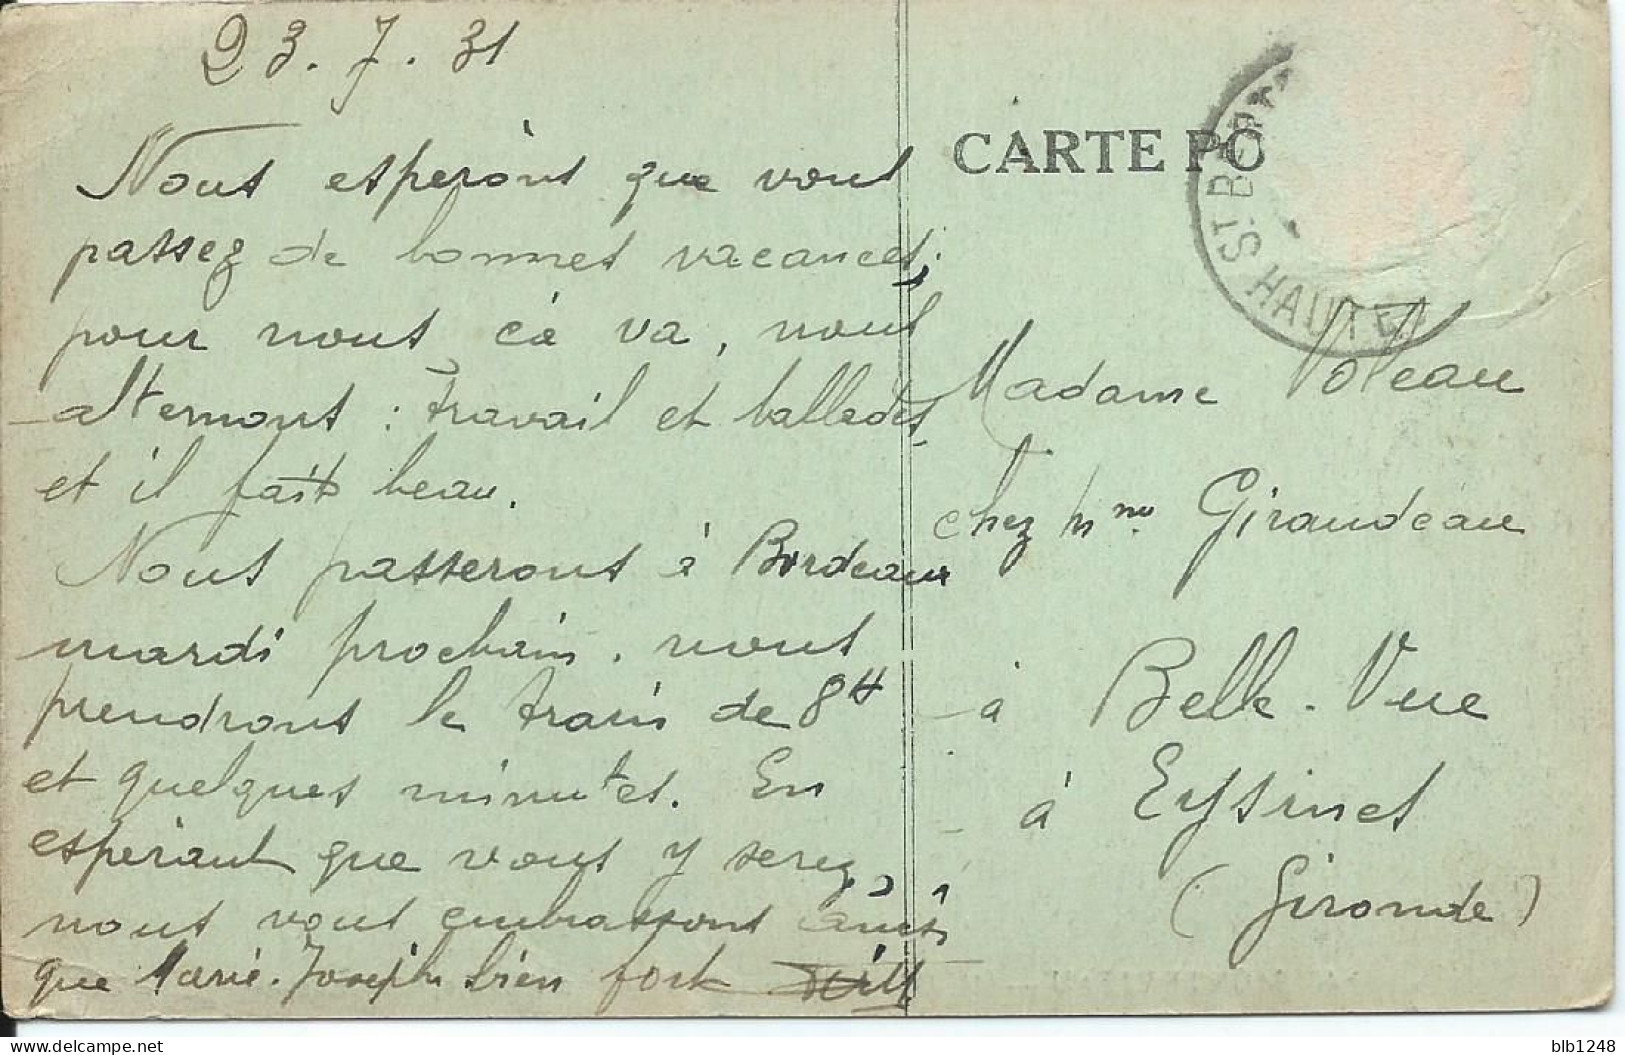 23.7.31
Nous espérons que vous
passez de bonnes vacances;
pour nous ça va, nous
alternons : travail et ballades,
et il fait beau.
Nous passerons à Bordeaux
mardi prochain. nous
prendrons le train de 8H
et quelques minutes. En
espérant que vous y serez,
nous vous embrassons ainsi
que Marie-Joseph bien fort
CARTE PO
ST BERT
HAUTE
Madame Voleau
chez Mme Giraudeau
à Belle-Vue
à Eysines
(Gironde)
delcampe.net
blb1248